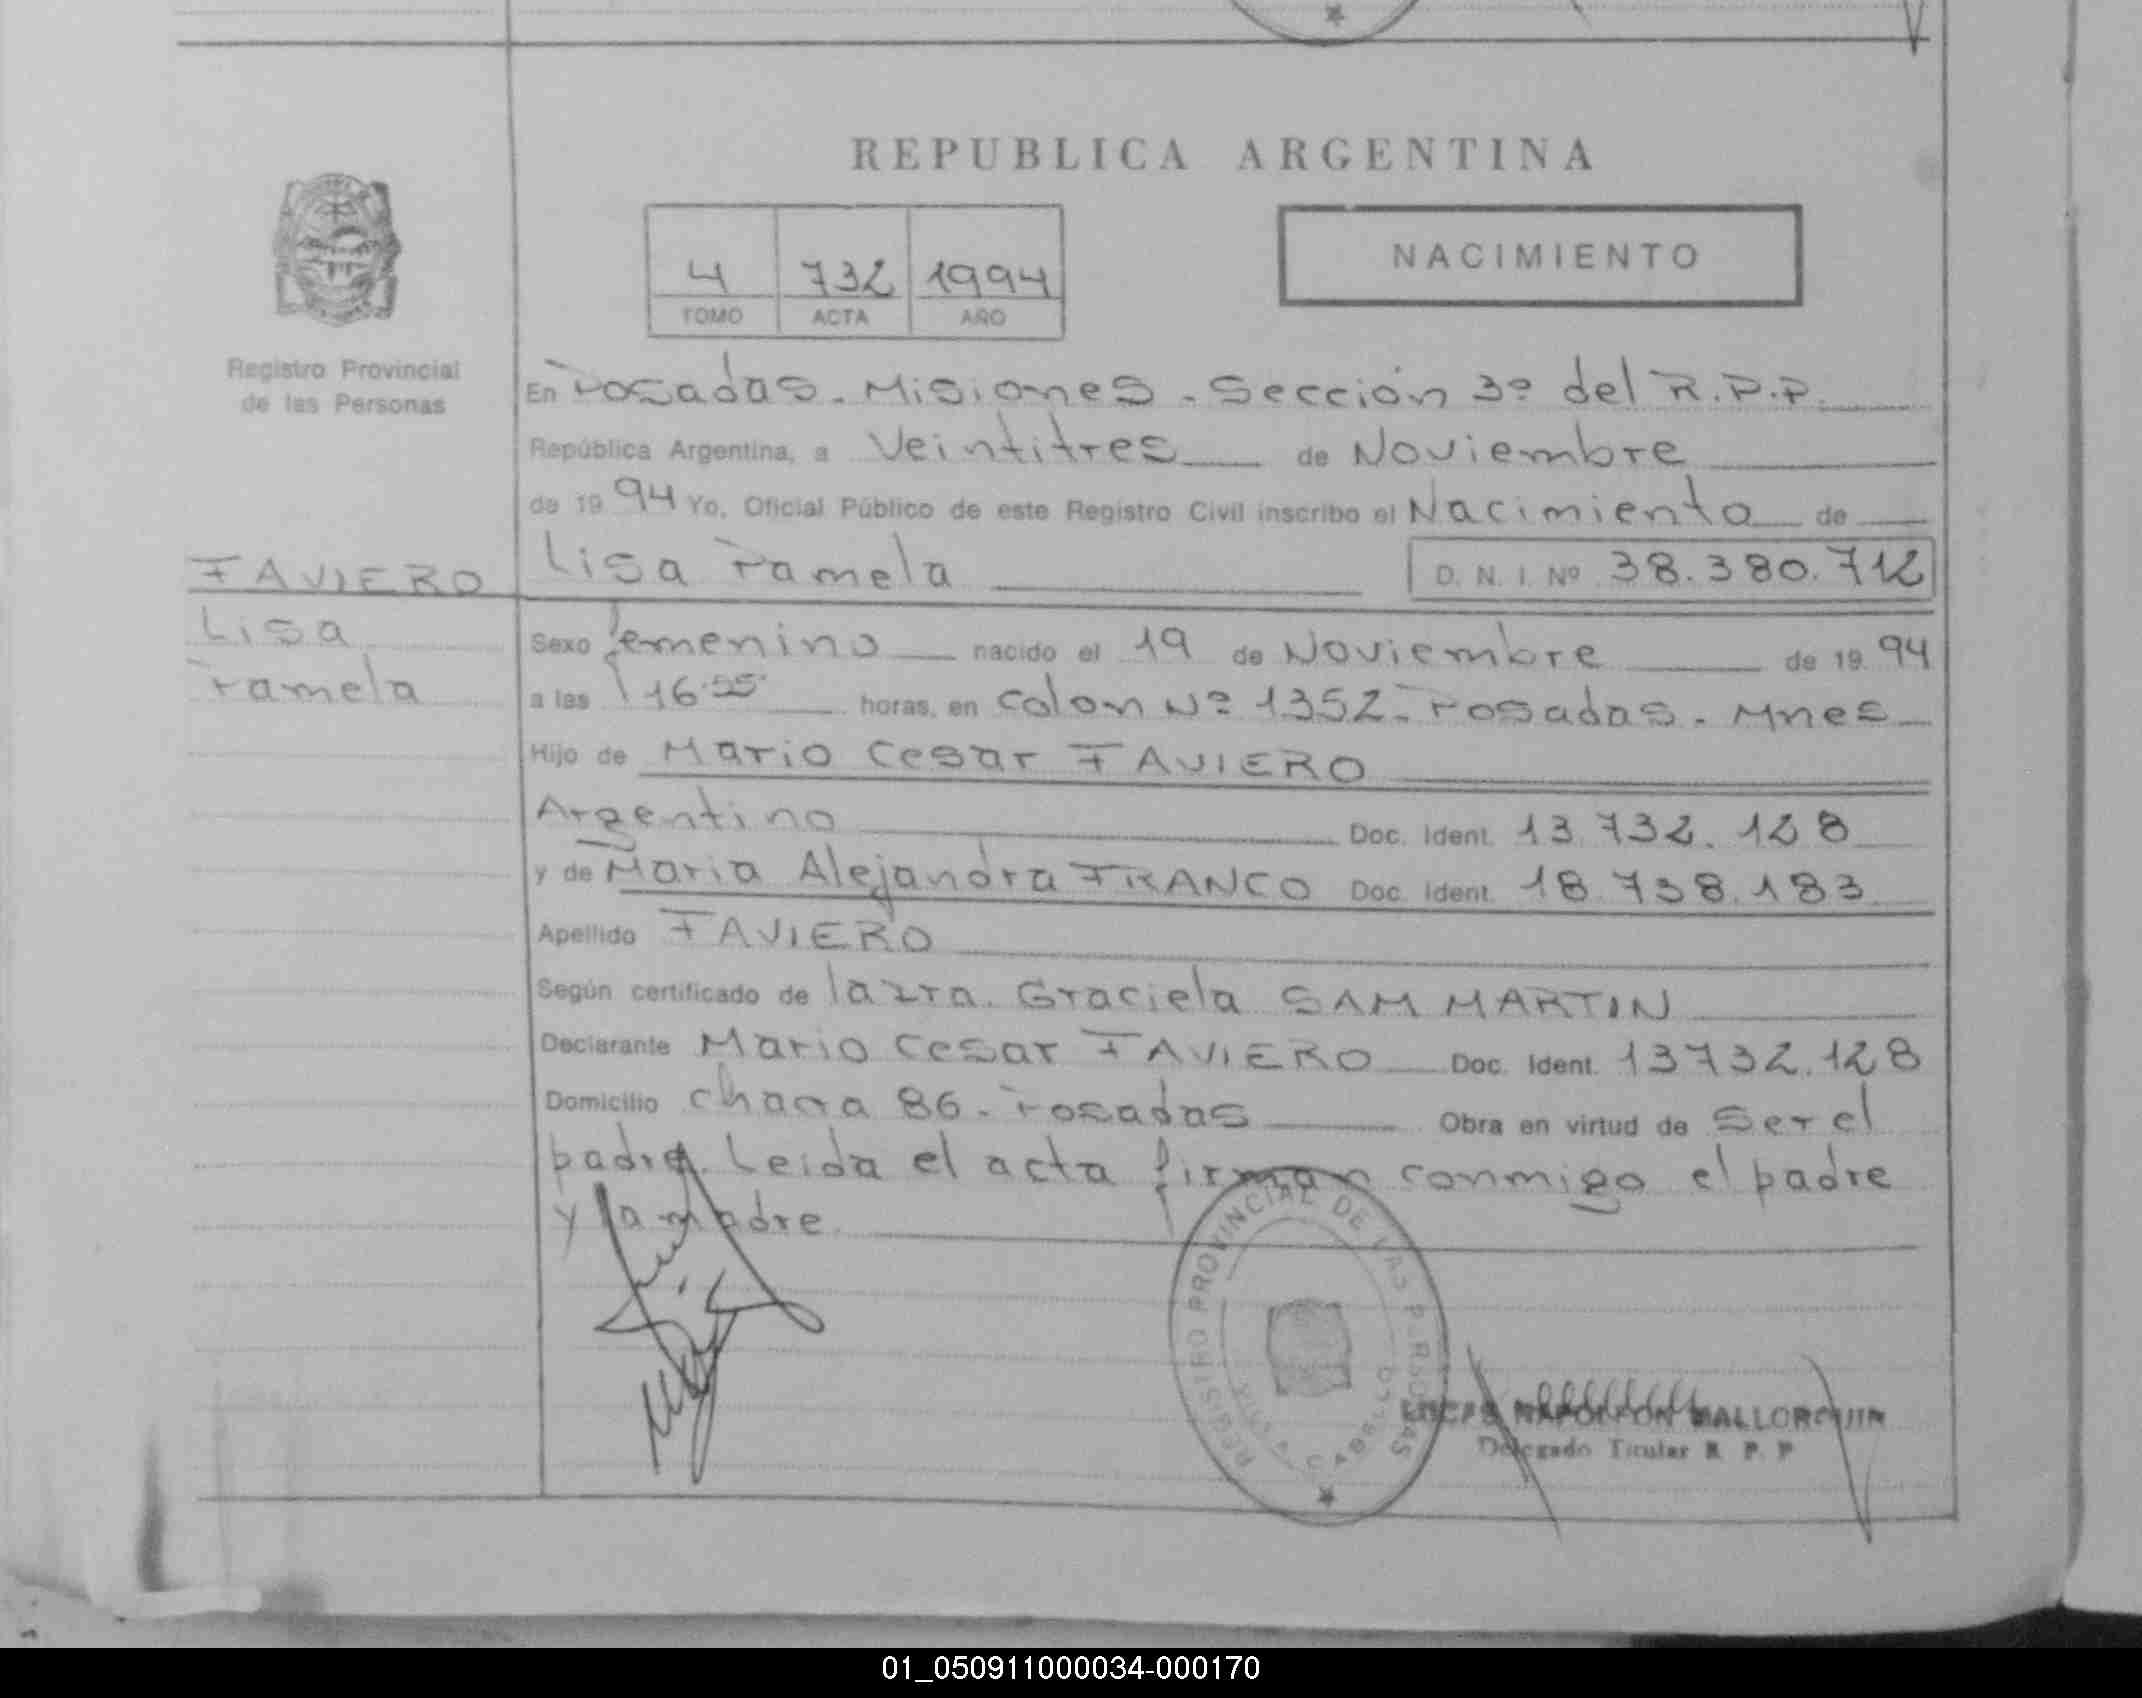 REPUBLICA ARGENTINA
4 732 1994
TOMO ACTA AÑO
NACIMIENTO
Registro Provincial
de las Personas
En Posadas. Misiones. Sección 3º del R.P.P.
República Argentina, a Veintitres de Noviembre
de 1994 Yo, Oficial Público de este Registro Civil inscribo el Nacimiento de
Lisa Pamela D. N. I. Nº 38.380.712
FAVIERO
Lisa
Pamela
Sexo femenino nacido el 19 de Noviembre de 1994
a las 16:55 horas, en Colon Nº 1352. Posadas. Mnes
Hijo de Mario Cesar FAVIERO
Argentino Doc. Ident. 13.732.128
y de Maria Alejandra FRANCO Doc. Ident. 18.738.183
Apellido FAVIERO
Según certificado de la Graciela SAM MARTIN
Declarante Mario Cesar FAVIERO Doc. Ident. 13732.128
Domicilio chacra 86. Posadas Obra en virtud de ser el
padre. Leida el acta firman conmigo el padre
y la madre.
REGISTRO PROVINCIAL DE LAS PERSONAS
MALLORQUIN
Delegado Titular R. P. P
01_050911000034-000170